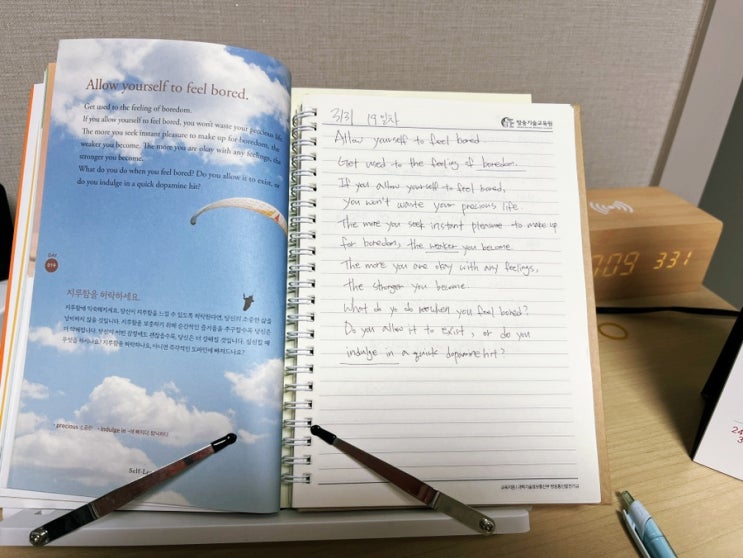 Allow yourself to feel bored.
Get used to the feeling of boredom.
If you allow yourself to feel bored, you won't waste your precious life.
The more you seek instant pleasure to make up for boredom, the
weaker you become. The more you are okay with any feelings, the
stronger you become.
What do you do when you feel bored? Do you allow it to exist, or
do you indulge in a quick dopamine hit?
지루함을 허락하세요.
지루함에 익숙해지세요. 당신이 지루함을 느낄 수 있도록 허락한다면, 당신의 소중한 삶을
낭비하지 않을 것입니다. 지루함을 보충하기 위해 순간적인 즐거움을 추구할수록 당신은
더 약해집니다. 당신이 어떤 감정에도 괜찮을수록, 당신은 더 강해질 것입니다. 심심할 때
무엇을 하시나요? 지루함을 허락하나요, 아니면 즉각적인 도파민에 빠져드나요?
• precious 소중한 • indulge in ~에 빠지다, 탐닉하다
3/31 19일차
방송기술교육원
Allow yourself to feel bored
Get used to the feeling of boredom.
If you allow yourself to feel bored,
you won't waste your precious life.
The more you seek instant pleasure to make up
for boredom, the weaker you become.
The more you are okay with any feelings,
the stronger you become.
What do you do when you feel bored?
Do you allow it to exist, or do you
indulge in a quick dopamine hit?
교육지원 | 과학기술정보통신부 방송통신발전기금
009 331
24